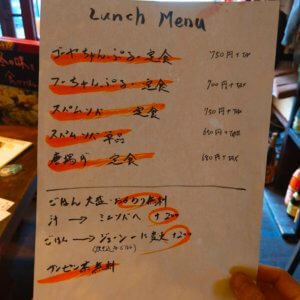 Lunch Menu
ゴーヤちゃんぷるー定食 750円+TAX
フーちゃんぷるー定食 700円+TAX
スパムソバ 定食 750円+TAX
スパムソバ 単品 650円+TAX
定食 680円+TAX
ごはん 大盛・おかわり無料
汁 → ミニソバへ +200
ごはん → ジューシーに変更 +200
茶無料